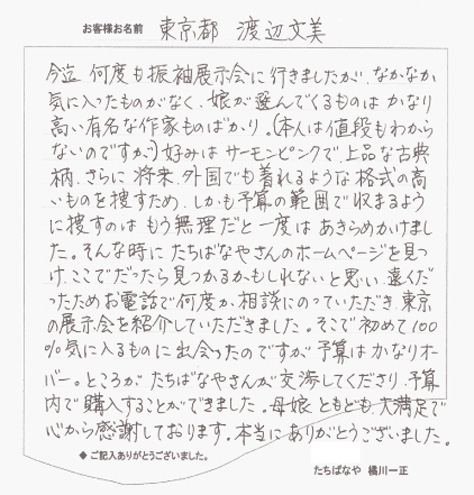 お客様お名前 東京都 渡辺文美
今迄 何度も振袖展示会に行きましたが、なかなか
気に入ったものがなく、娘が選んでくるものは かなり
高い有名な作家ものばかり。(本人は値段もわから
ないのですが)好みは サーモンピンクで、上品な古典
柄、さらに 将来、外国でも着れるような 格式の高
いものを捜すため、しかも予算の範囲で収まるよう
に捜すのは もう無理だと一度は あきらめかけまし
た。そんな時に たちばなやさんのホームページを見つ
け、ここでだったら見つかるかもしれないと思い、遠くだ
ったためお電話で何度か、相談にのっていただき、東京
の展示会を紹介していただきました。そこで初めて100
%気に入るものに出会ったのですが 予算は かなりオー
バー。ところが たちばなやさんが 交渉してくださり、予算
内で 購入することができました。母娘 ともども、大満足で
心から感謝しております。本当に ありがとうございました。
◆ ご記入ありがとうございました。
たちばなや 橘川一正